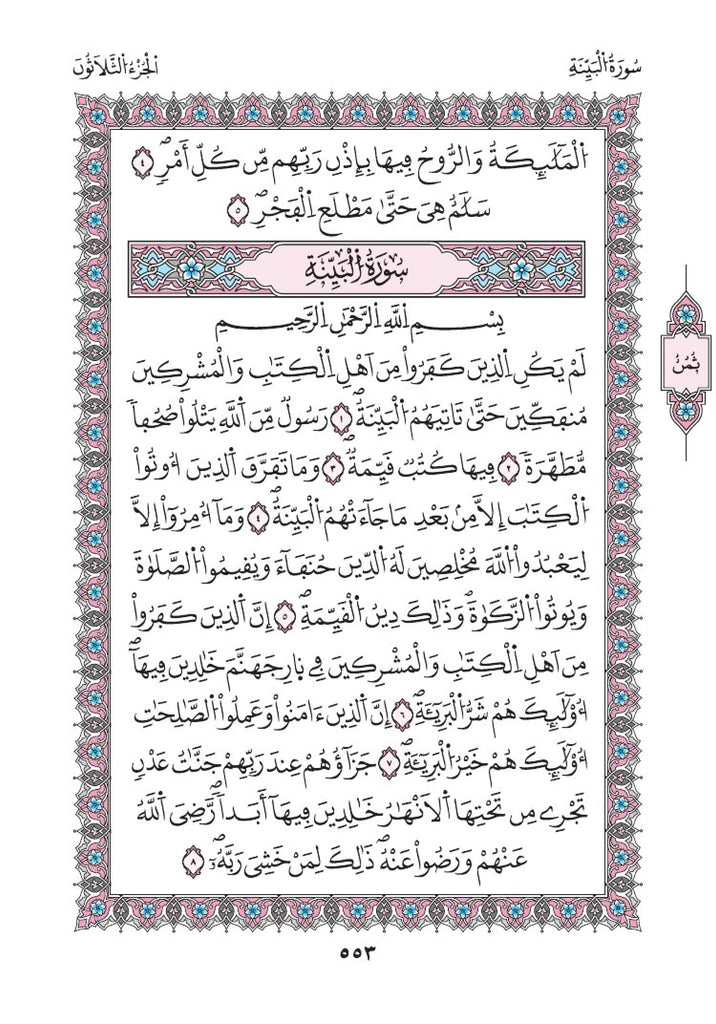 سُورَةُ اُلْبَيِّنَةِ
اُلْجُزْءُ اُلثَّلَاثُونَ
اُلْمَلَٰٓئِكَةُ وَالرُّوحُ فِيهَا بِإِذْنِ رَبِّهِم مِّن كُلِّ أَمْرٖۖ ٤
سَلَٰمٌ هِيَ حَتَّىٰ مَطْلَعِ اِ۬لْفَجْرِۖ ٥
سُورَةُ اُلْبَيِّنَةِ
بِسْمِ اِ۬للَّهِ اِ۬لرَّحْمَٰنِ اِ۬لرَّحِيمِ
لَمْ يَكُنِ اِ۬لذِينَ كَفَرُواْ مِنَ اَهْلِ اِ۬لْكِتَٰبِ وَالْمُشْرِكِينَ
مُنفَكِّينَ حَتَّىٰ تَاتِيَهُمُ اُ۬لْبَيِّنَةُۖ ١ رَسُولٞ مِّنَ اَ۬للَّهِ يَتْلُواْ صُحُفاٗ
مُّطَهَّرَةٗ ٢ فِيهَا كُتُبٞ قَيِّمَةٞۖ ٣ وَمَا تَفَرَّقَ اَ۬لذِينَ أُوتُواْ
اُ۬لْكِتَٰبَ إِلَّا مِنۢ بَعْدِ مَا جَآءَتْهُمُ اُ۬لْبَيِّنَةُۖ ٤ وَمَآ أُمِرُوٓاْ إِلَّا
لِيَعْبُدُواْ اُ۬للَّهَ مُخْلِصِينَ لَهُ اُ۬لدِّينَ حُنَفَآءَ وَيُقِيمُواْ اُ۬لصَّلَوٰةَ
وَيُوتُواْ اُ۬لزَّكَوٰةَۖ وَذَٰلِكَ دِينُ اُ۬لْقَيِّمَةِۖ ٥ إِنَّ اَ۬لذِينَ كَفَرُواْ
مِنَ اَهْلِ اِ۬لْكِتَٰبِ وَالْمُشْرِكِينَ فِي نارِ جَهَنَّمَ خَٰلِدِينَ فِيهَآۖ
أُوْلَٰٓئِكَ هُمْ شَرُّ اُ۬لْبَرِيٓـَٔةِۖ ٦ إِنَّ اَ۬لذِينَ ءَامَنُواْ وَعَمِلُواْ اُ۬لصَّٰلِحَٰتِ
أُوْلَٰٓئِكَ هُمْ خَيْرُ اُ۬لْبَرِيٓـَٔةِۖ ٧ جَزَآؤُهُمْ عِندَ رَبِّهِمْ جَنَّٰتُ عَدْنٖ
تَجْرِے مِن تَحْتِهَا اَ۬لَانْهَٰرُ خَٰلِدِينَ فِيهَآ أَبَداٗۖ رَّضِيَ اَ۬للَّهُ
عَنْهُمْ وَرَضُواْ عَنْهُۖ ذَٰلِكَ لِمَنْ خَشِيَ رَبَّهُۥۖ ٨
ثُمُنُ
٥٥٣